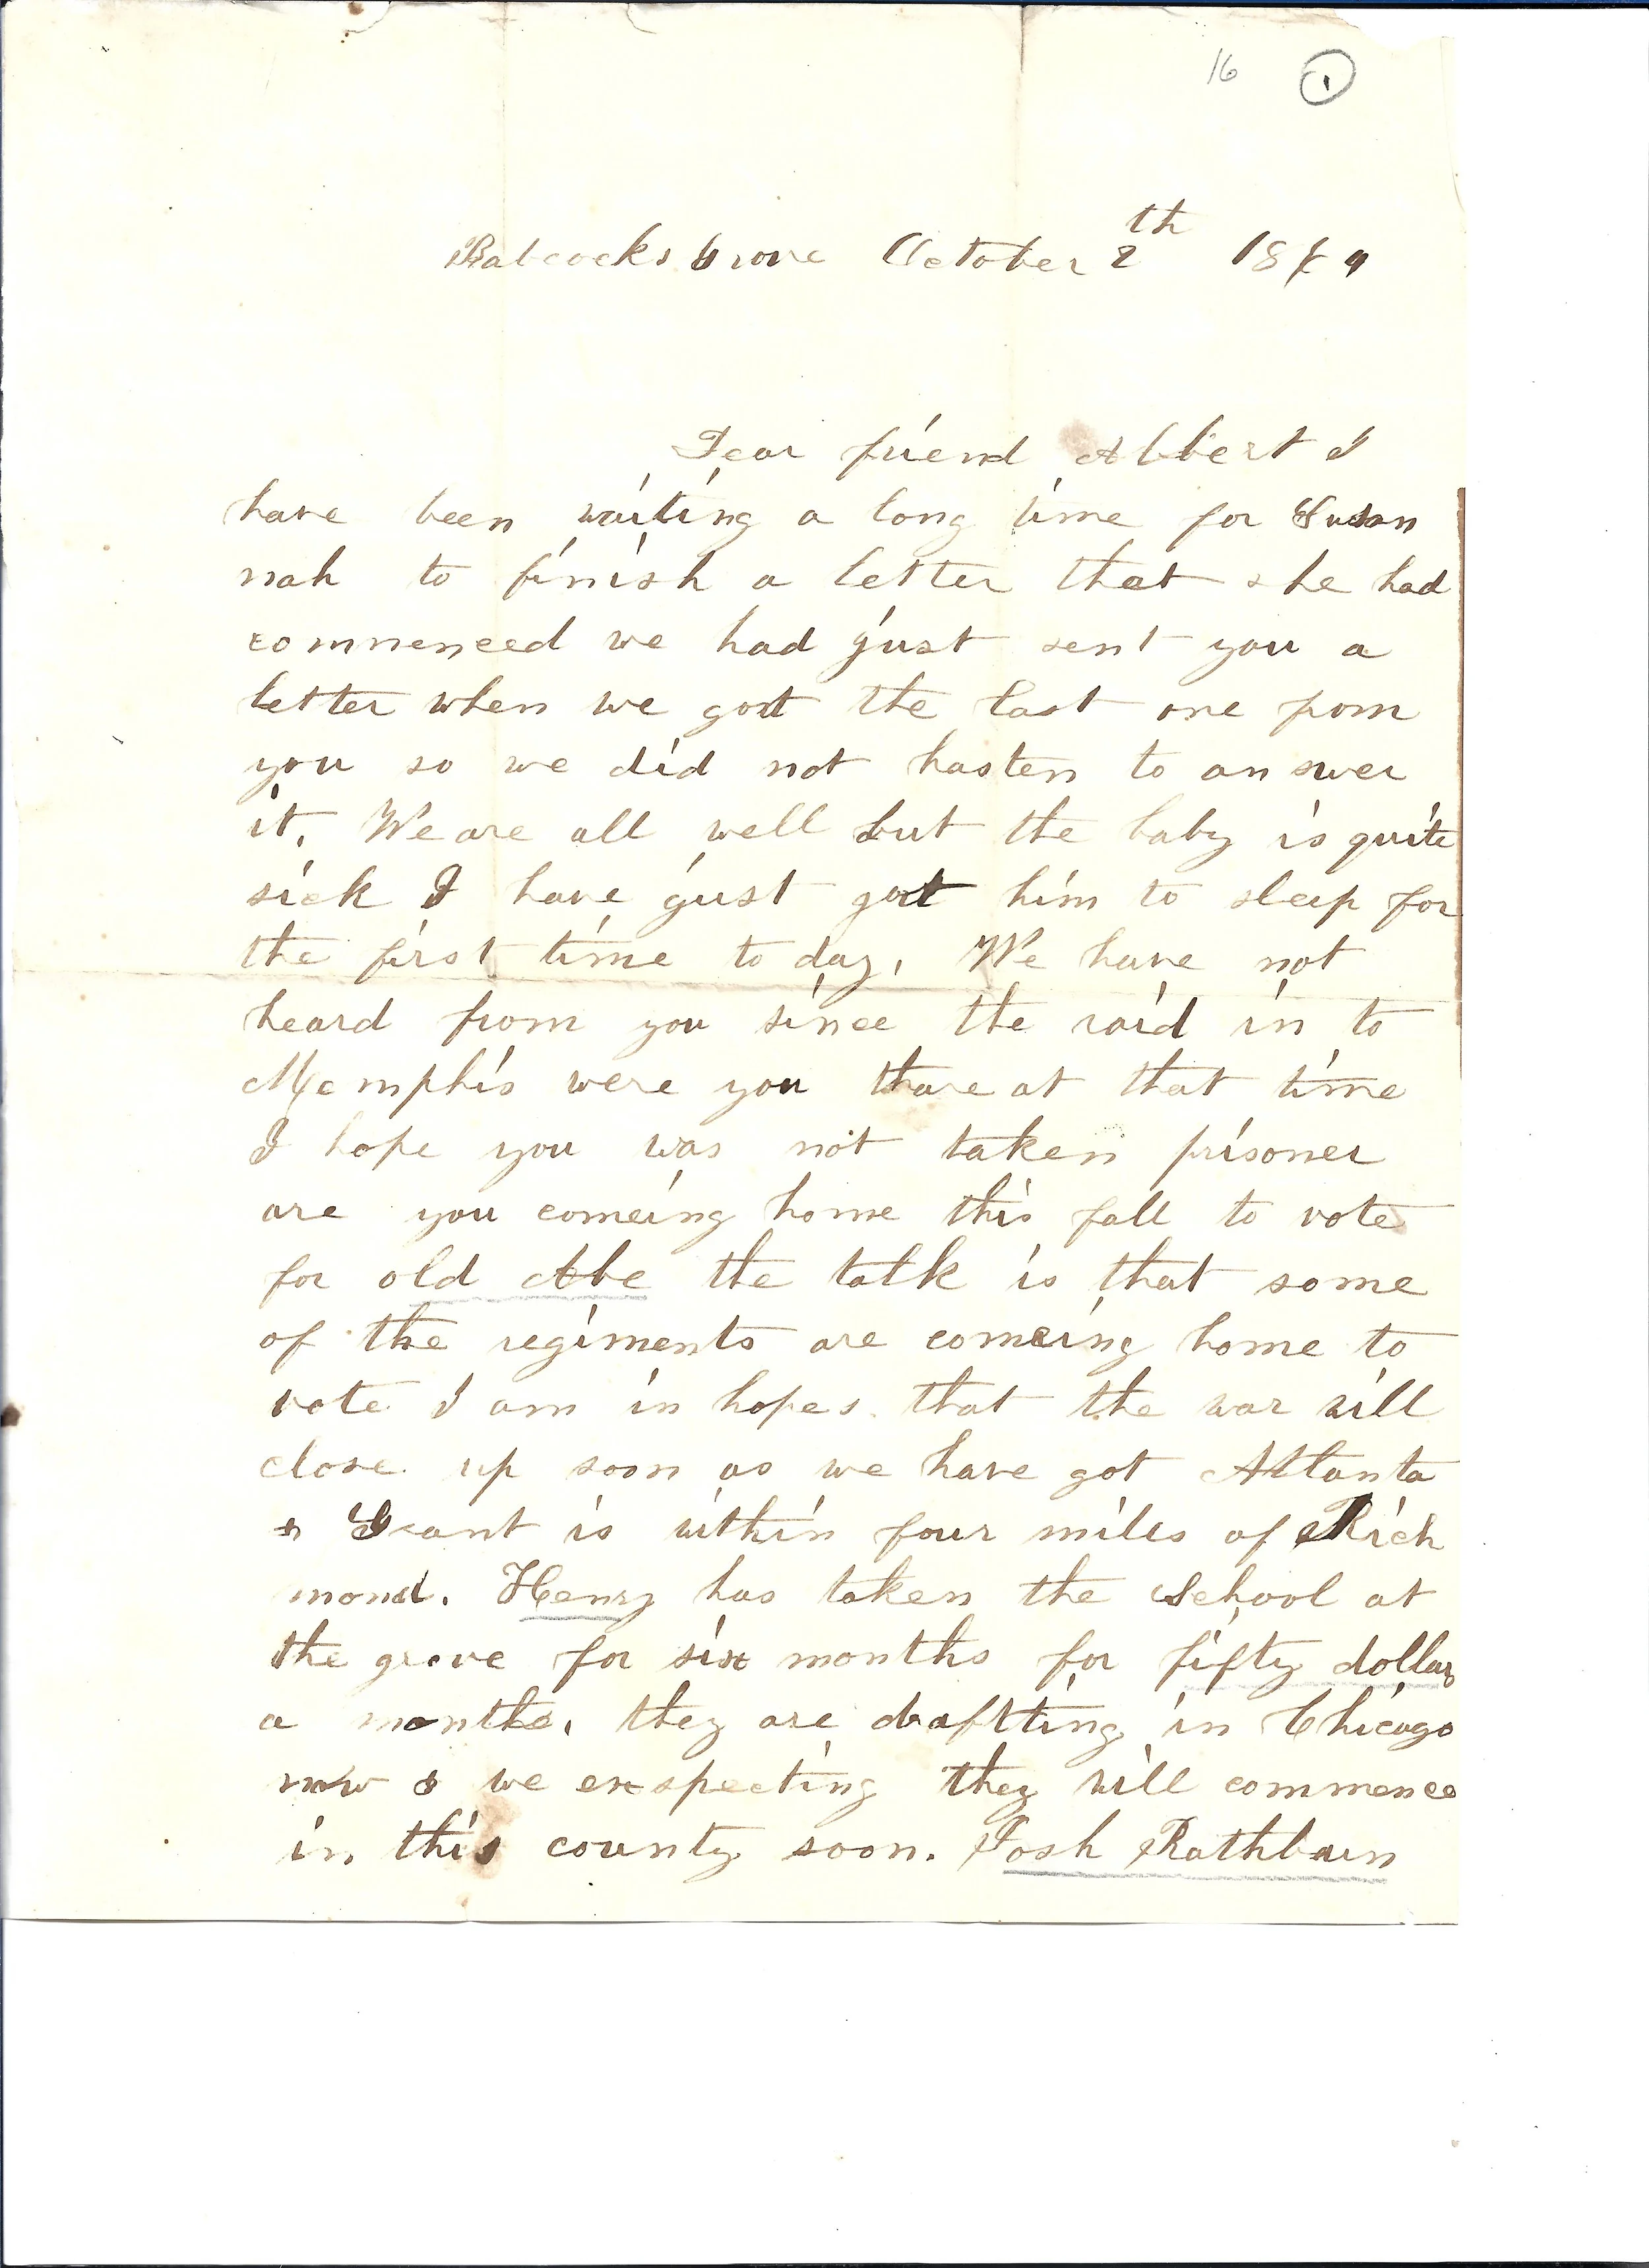 16 1
Babcocks Grove October 2th 1864
Dear friend Albert I
have been waiting a long time for Susan
nah to finish a letter that she had
commenced we had just sent you a
letter when we gott the last one from
you so we did not hasten to answer
it. We are all well but the baby is quite
sick I have just gott him to sleep for
the first time to day, We have not
heard from you since the raid in to
Memphis were you thare at that time
I hope you was not taken prisoner
are you comeing home this fall to vote
for old Abe the talk is that some
of the regiments are comeing home to
vote I am in hopes that the war will
close up soon as we have got Atlanta
& Grant is within four miles of Rich
mond. Henry has taken the School at
the grove for six months for fifty dollars
a monthe, they are draftting in Chicago
now & we exspecting they will commence
in this county soon. Josh Rathburn